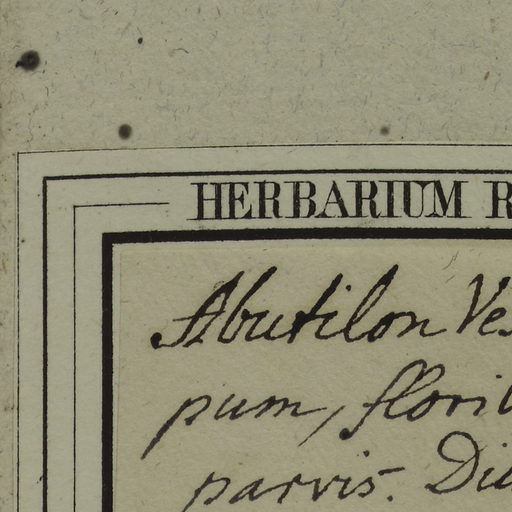 HERBARIUM R
Abutilon Ves
pum, florib
parvis. Dil